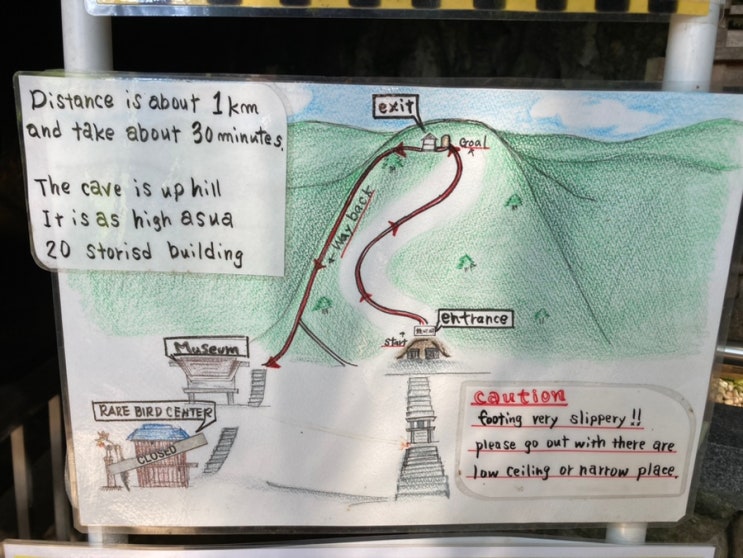 Distance is about 1km
and take about 30 minutes.
The cave is up hill
It is as high asua
20 storisd building
exit
Goal
← Way back
entrance
start
Museum
RARE BIRD CENTER
CLOSED
caution
footing very slippery!!
please go out with there are
low ceiling or narrow place.